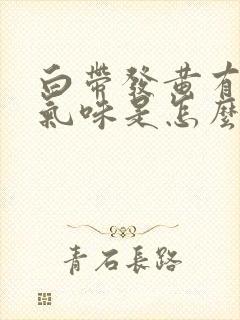 白帶發黃有
氣味是怎麼
青石長路